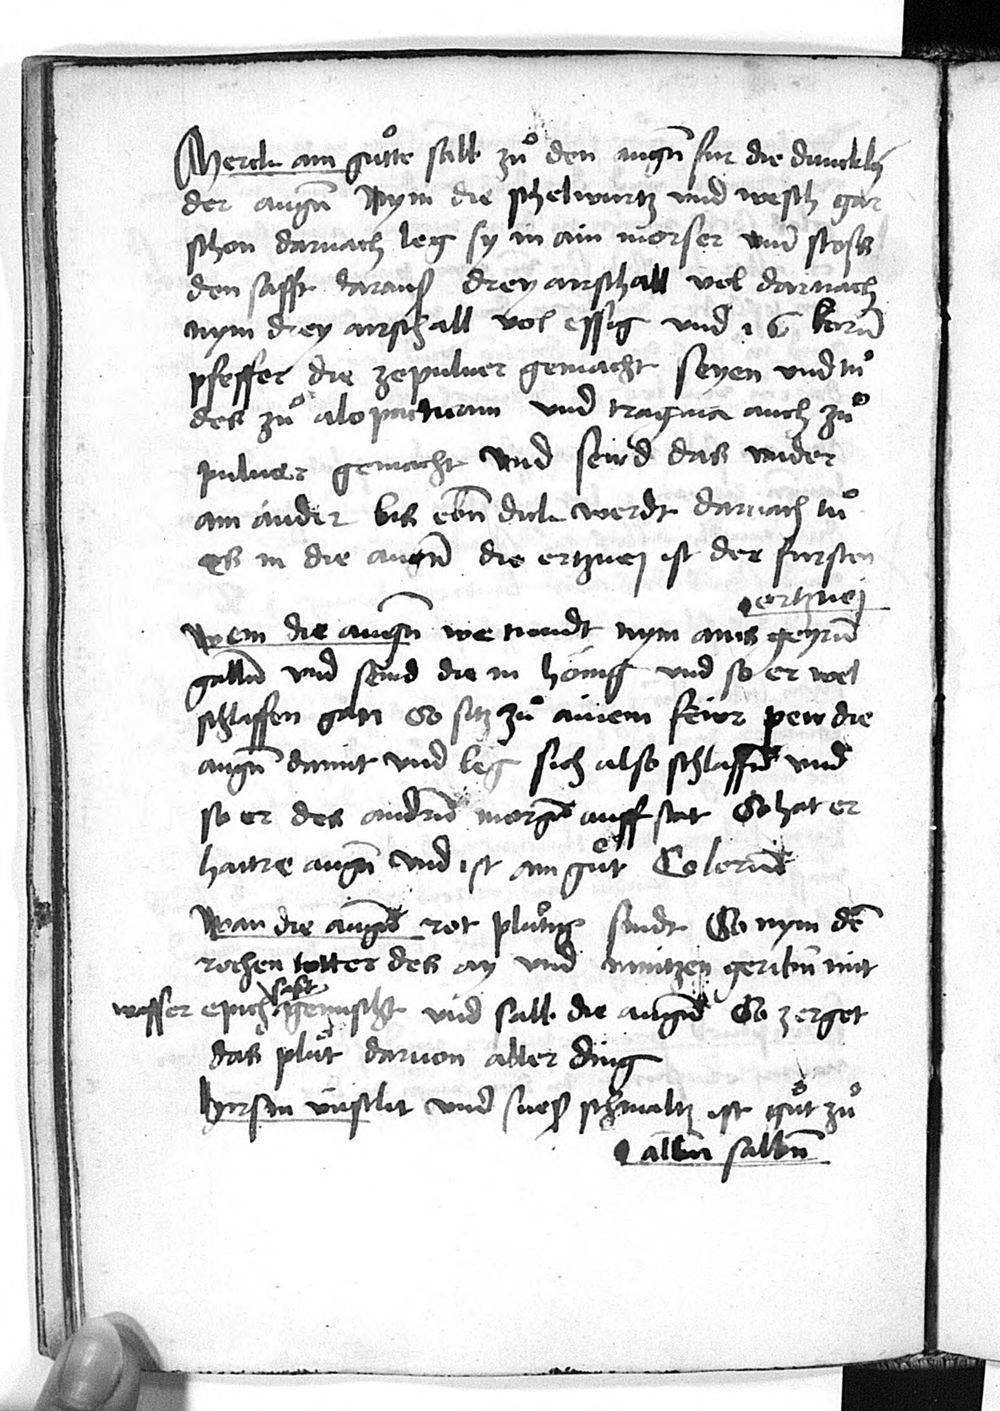 Merck ain gůtte salb zů den augn̄ fur die duncklh
der augn̄ Nym die schelwurtz und wesch gar
schon darnach leg sy in ain morser und stoss
den safft darauß drey airschall vol darnach
nym drey airschall vol essig und 16 korn̄
pfeffer die zepulver gemacht seyen und tů
des zů alopaticum und tragma auch zů
pulver gemacht Und seud das under
ain ander bis ebn̄ dick werdt darnach tů
es in die augn̄ die ertzney ist der fursten
ertzney
Wem die augn̄ we tundt nym ains geyrn̄
galln̄ und seud die in hönig und so er wel
schlaffen gan So sitz zů ainem feiwr die
augn̄ damit und leg sich also schlaffn̄ und
so er des andrn̄ morgn̄ auff stat So hat er
haitre augn̄ und ist ain gůt Colerium
Wan die augn̄ rot plůtig sindt So nym dē
rochen totter des ay und mintzen geribn̄ mit
wasser epich safft gemischt und salb die augn̄ So zerget
das plůt darvon aller ding
hyrsin unslit und sueß schmaltz ist gůt zů
alln̄ salbn̄